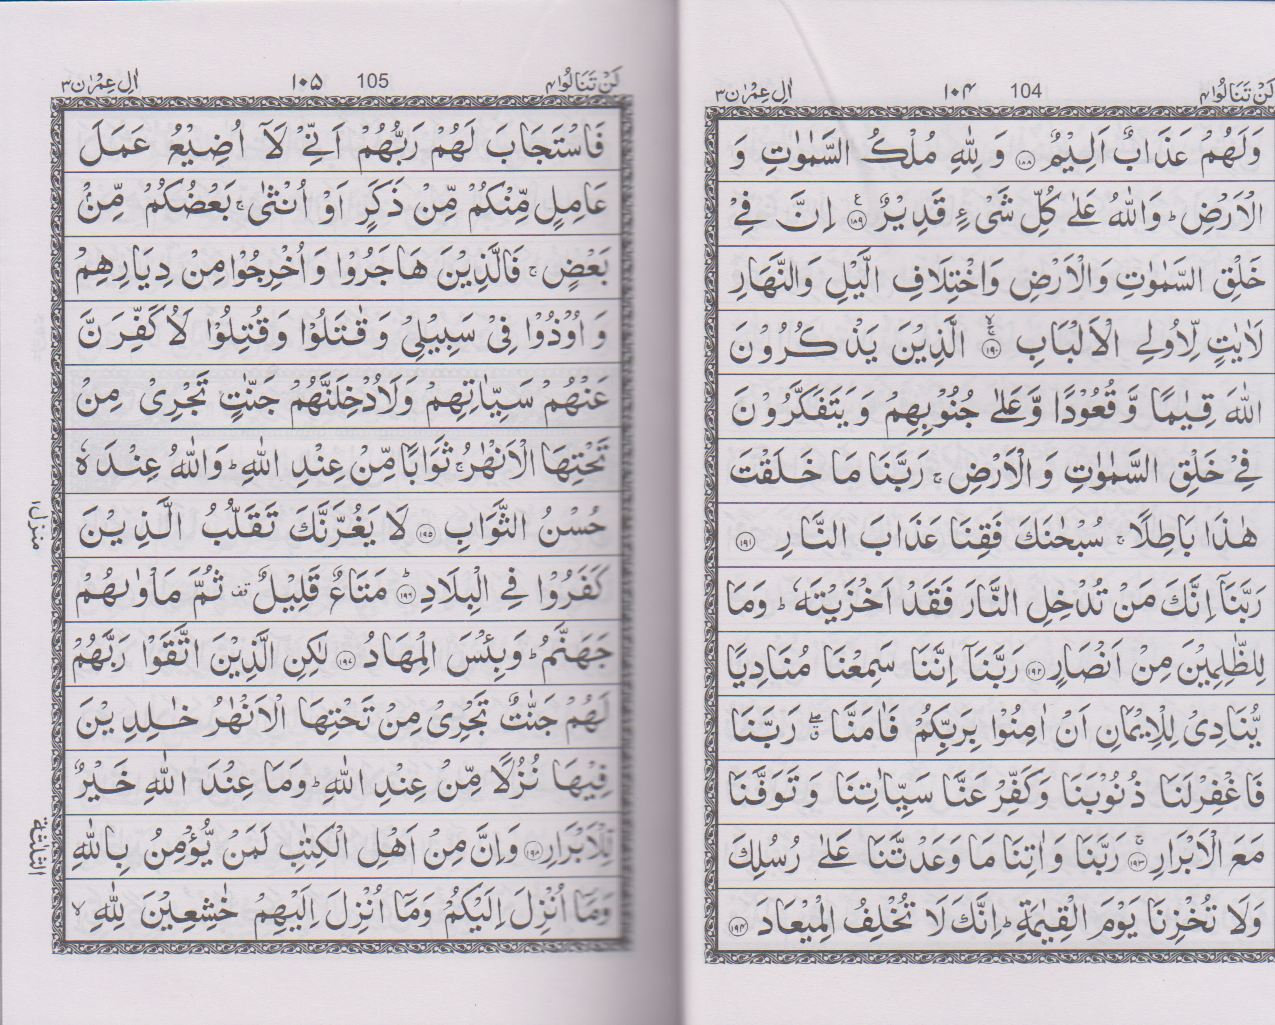 لَنْ تَنَالُوا ۴ 104 ۱۰۴ اٰلِ عِمْرٰن ۳
وَلَهُمْ عَذَابٌ اَلِيْمٌ ۝۱۸۸ وَ لِلّٰهِ مُلْكُ السَّمٰوٰتِ وَ
الْاَرْضِ ؕ وَاللّٰهُ عَلٰى كُلِّ شَىْءٍ قَدِيْرٌ ۝۱۸۹ اِنَّ فِىْ
خَلْقِ السَّمٰوٰتِ وَالْاَرْضِ وَاخْتِلَافِ الَّيْلِ وَالنَّهَارِ
لَاٰيٰتٍ لِّاُولِى الْاَلْبَابِ ۝۱۹۰ الَّذِيْنَ يَذْكُرُوْنَ
اللّٰهَ قِيٰمًا وَّ قُعُوْدًا وَّعَلٰى جُنُوْبِهِمْ وَ يَتَفَكَّرُوْنَ
فِىْ خَلْقِ السَّمٰوٰتِ وَ الْاَرْضِ ۚ رَبَّنَا مَا خَلَقْتَ
هٰذَا بَاطِلًا ۚ سُبْحٰنَكَ فَقِنَا عَذَابَ النَّارِ ۝۱۹۱
رَبَّنَاۤ اِنَّكَ مَنْ تُدْخِلِ النَّارَ فَقَدْ اَخْزَيْتَهٗ ؕ وَمَا
لِلظّٰلِمِيْنَ مِنْ اَنْصَارٍ ۝۱۹۲ رَبَّنَاۤ اِنَّنَا سَمِعْنَا مُنَادِيًا
يُّنَادِىْ لِلْاِيْمَانِ اَنْ اٰمِنُوْا بِرَبِّكُمْ فَاٰمَنَّا ۖ رَبَّنَا
فَاغْفِرْلَنَا ذُنُوْبَنَا وَكَفِّرْ عَنَّا سَيِّاٰتِنَا وَ تَوَفَّنَا
مَعَ الْاَبْرَارِ ۝۱۹۳ رَبَّنَا وَاٰتِنَا مَا وَعَدْتَّنَا عَلٰى رُسُلِكَ
وَلَا تُخْزِنَا يَوْمَ الْقِيٰمَةِ ؕ اِنَّكَ لَا تُخْلِفُ الْمِيْعَادَ ۝۱۹۴
لَنْ تَنَالُوا ۴ 105 ۱۰۵ اٰلِ عِمْرٰن ۳
فَاسْتَجَابَ لَهُمْ رَبُّهُمْ اَنِّىْ لَاۤ اُضِيْعُ عَمَلَ
عَامِلٍ مِّنْكُمْ مِّنْ ذَكَرٍ اَوْ اُنْثٰى ۚ بَعْضُكُمْ مِّنْۢ
بَعْضٍ ۚ فَالَّذِيْنَ هَاجَرُوْا وَ اُخْرِجُوْا مِنْ دِيَارِهِمْ
وَ اُوْذُوْا فِىْ سَبِيْلِىْ وَ قٰتَلُوْا وَ قُتِلُوْا لَاُكَفِّرَنَّ
عَنْهُمْ سَيِّاٰتِهِمْ وَلَاُدْخِلَنَّهُمْ جَنّٰتٍ تَجْرِىْ مِنْ
تَحْتِهَا الْاَنْهٰرُ ۚ ثَوَابًا مِّنْ عِنْدِ اللّٰهِ ؕ وَاللّٰهُ عِنْدَهٗ
حُسْنُ الثَّوَابِ ۝۱۹۵ لَا يَغُرَّنَّكَ تَقَلُّبُ الَّذِيْنَ
كَفَرُوْا فِى الْبِلَادِ ؕ۝۱۹۶ مَتَاعٌ قَلِيْلٌ قف ثُمَّ مَاْوٰىهُمْ
جَهَنَّمُ ؕ وَبِئْسَ الْمِهَادُ ۝۱۹۷ لٰكِنِ الَّذِيْنَ اتَّقَوْا رَبَّهُمْ
لَهُمْ جَنّٰتٌ تَجْرِىْ مِنْ تَحْتِهَا الْاَنْهٰرُ خٰلِدِيْنَ
فِيْهَا نُزُلًا مِّنْ عِنْدِ اللّٰهِ ؕ وَمَا عِنْدَ اللّٰهِ خَيْرٌ
لِّلْاَبْرَارِ ۝۱۹۸ وَاِنَّ مِنْ اَهْلِ الْكِتٰبِ لَمَنْ يُّؤْمِنُ بِاللّٰهِ
وَمَاۤ اُنْزِلَ اِلَيْكُمْ وَمَاۤ اُنْزِلَ اِلَيْهِمْ خٰشِعِيْنَ لِلّٰهِ ۙ
منزل ۱
الثلثة